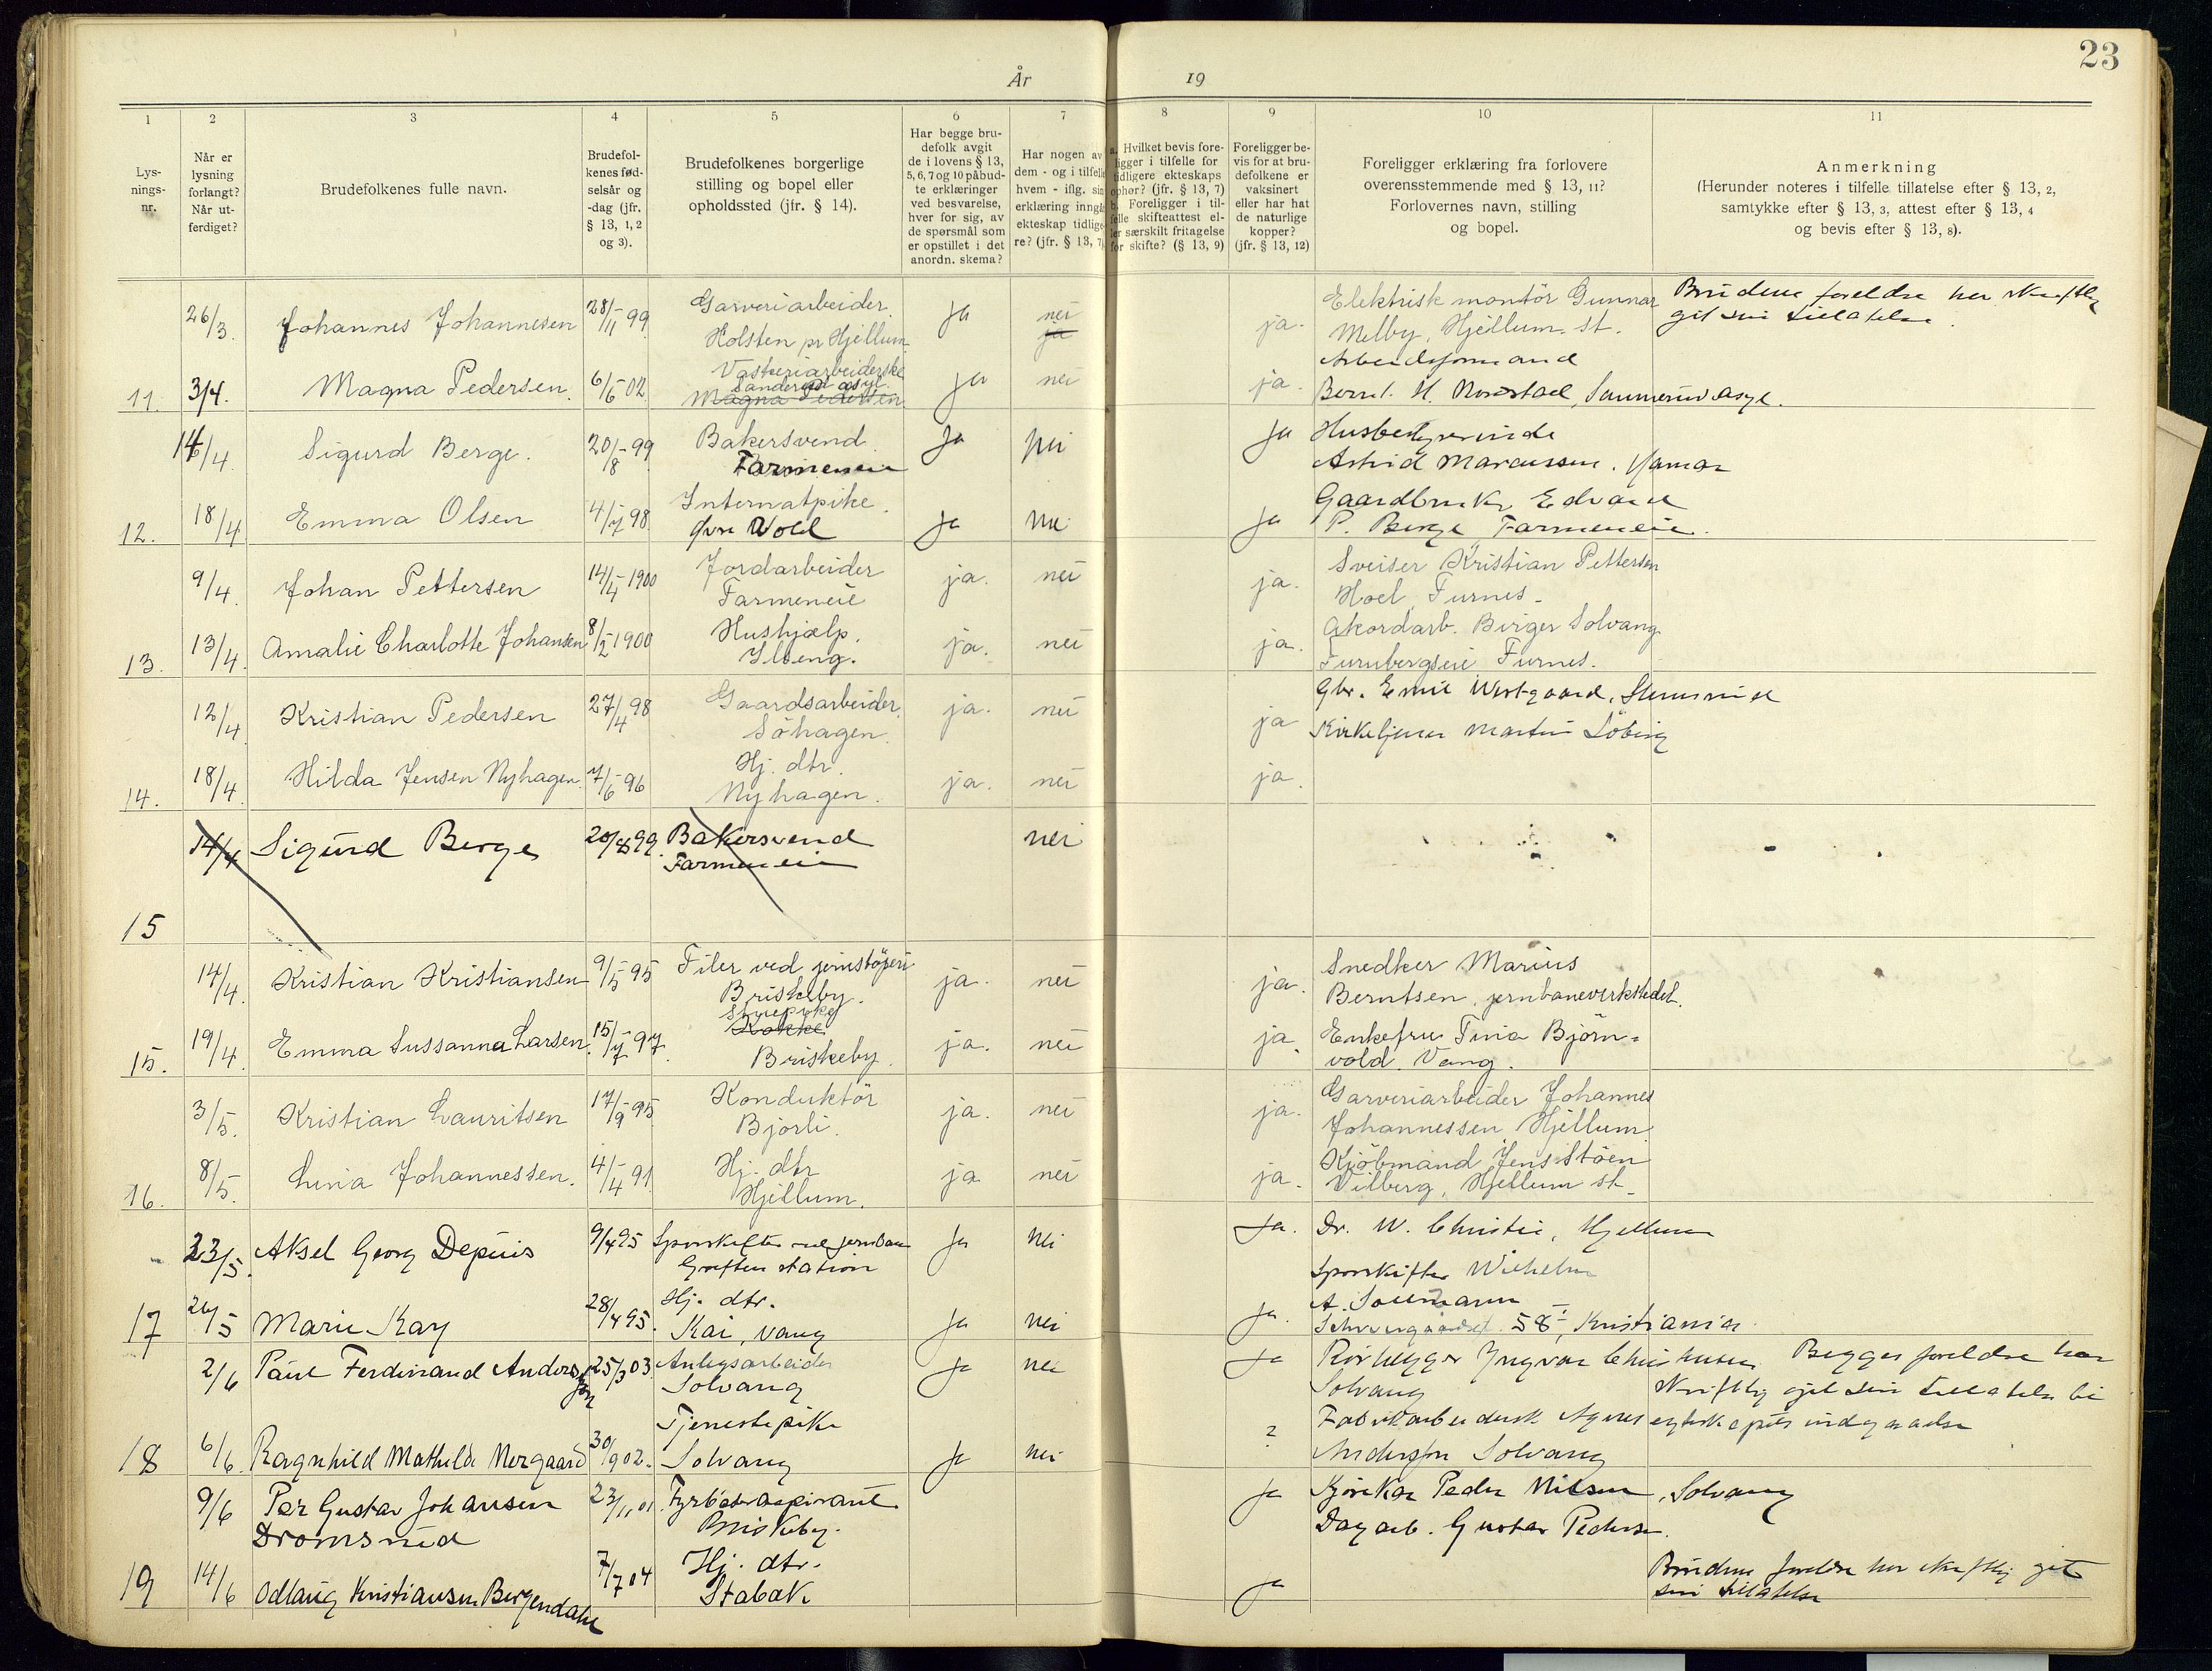 23
År
19
1 2 3 4 5 6 7 8 9 10 11
Lys-
nings-
nr.
Når er
lysning
forlangt?
Når ut-
ferdiget?
Brudefolkenes fulle navn.
Brudefol-
kenes fød-
selsår og
-dag (jfr.
§ 13, 1, 2
og 3).
Brudefolkenes borgerlige
stilling og bopel eller
opholdssted (jfr. § 14).
Har begge bru-
defolk avgit
de i lovens § 13,
5, 6, 7 og 10 påbud-
te erklæringer
ved besvarelse,
hver for sig, av
de spørsmål som
er opstillet i det
anordn. skema?
Har nogen av
dem - og i tilfelle
hvem - iflg. sin
erklæring inngå
ekteskap tidlige-
re? (jfr. § 13, 7)
a. Hvilket bevis fore-
ligger i tilfelle for
tidligere ekteskaps
ophør? (jfr. § 13, 7)
b. Foreligger i til-
felle skifteattest el-
ler særskilt fritagelse
for skifte? (§ 13, 9)
Foreligger be-
vis for at bru-
defolkene er
vaksinert
eller har hat
de naturlige
kopper?
(jfr. § 13, 12)
Foreligger erklæring fra forlovere
overensstemmende med § 13, 11?
Forlovernes navn, stilling
og bopel.
Anmerkning
(Herunder noteres i tilfelle tillatelse efter § 13, 2,
samtykke efter § 13, 3, attest efter § 13, 4
og bevis efter § 13, 8).
26/3. Johannes Johannesen 28/11-99 Garveriarbeider Ja nei ja. Elektrisk montör Gunnar Brudens foreldre har skriftlig
Holsten pr Hjellum ja Melby, Hjellum st. git sin tillatelse.
Vaskeriarbeiderske Arbeidsformand
Sanderud asyl.
11. 3/4. Magna Pedersen. 6/6-02 Magna Pedersen ja nei ja. Bernt. H. Norstad, Sannerud asyl.
14/4 Sigurd Berge. 20/8-99 Bakersvend Ja nei Ja Husbestyrerinde
Farmeneie Astrid Marcussen. Hamar
Internatpike. Gaardbruker Edvard
12. 18/4 Emma Olsen 4/7-98 Øvre Vold Ja nei Ja P. Berge Farmeneie.
9/4 Johan Pettersen 14/4-1900 Jordarbeider ja. nei ja. Sveiser Kristian Pettersen
Farmeneie Hoel, Furnes.
Hushjælp. Akordarb. Birger Solvang
13. 13/4 Amalie Charlotte Johansen 8/2-1900 Ilseng. ja. nei ja. Furubergseie Furnes.
12/4 Kristian Pedersen 27/4 98 Gaardsarbeider ja. nei ja Gbr. Emil Westgaard,
Söhagen. Kirketjener Martin
Hj. dtr.
14. 18/4 Hilda Jensen Nyhagen. 7/6-96 Nyhagen. ja. nei ja.
14/4 Sigurd Berge 20/8 99. Bakersvend nei
Farmeneie
15
14/4. Kristian Kristiansen 9/5-95 Filer ved jernstöperi ja. nei ja. Snedker Marius
Briskeby. Berntsen, jernbaneverkstedet.
Kokke
15. 19/4 Emma Sussanna Larsen. 15/7-97. Briskeby. ja. nei ja Enkefru Tina Björn-
vold. Vang.
3/5. Kristian Lauritsen 17/9-95 Konduktör ja. nei ja. Garveriarbeider Johannes
Bjorli. Johannessen Hjellum.
Hj. dtr Kjöbmand Jens Stöen
16. 8/5. Lina Johannessen. 4/4-91 Hjellum. ja nei ja. Vilberg, Hjellum st.
23/5. Aksel Georg Depuis 9/4 95 Sporskifter ved jernban Ja nei Ja. Dr. W. Christie, Hjellum
station Sporskifter Wilhelm
Hj. dtr. A.
17 26/5 Marie Kay 28/4 95. Kai, Vang Ja nei Ja. 58 I, Kristiania
2/6 Paul Ferdinand Anderssen 25/3 03 Anlegsarbeider Ja nei Ja Rörlegger Yngvar Christiansen Begges foreldre har
Solvang Solvang skriftlig git sin tillatelse til
Tjenestepike Fabrikarbeiderske Agnes egteskapets indgaaelse
18 6/6. Ragnhild Mathilde Norgaard 30/9 02. Solvang Ja nei ? Anderssen Solvang
9/6 Per Gustav Johansen 23/11 01. Fyrböteraspirant Ja Peder Nilsen, Solvang
Dromsrud Briskeby. Dagarb. Gustav Pedersen.
Hj. dtr. Brudens foreldre har skriftlig git
19 14/6 Odlaug Kristiansen Bergendahl 7/7 04 Stabak Ja sin tillatelse